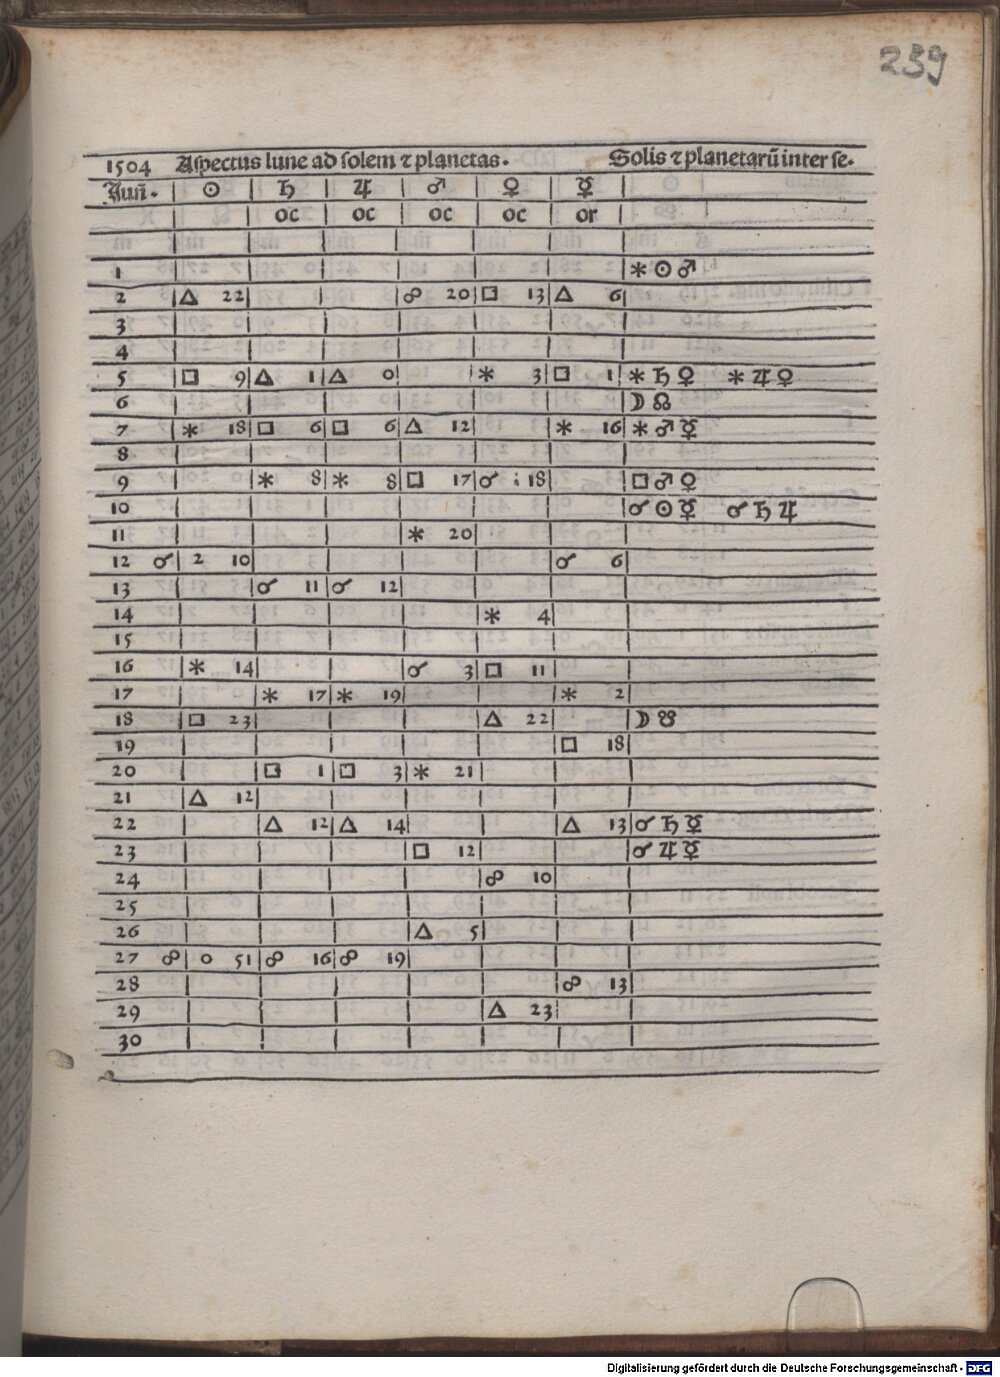 239
1504 Aspectus lune ad solem ⁊ planetas. Solis ⁊ planetarū inter se.
Juñ. ☉ ♄ ♃ ♂ ♀ ☿
oc oc oc oc or
1 ⚹ ☉ ♂
2 △ 22 ☍ 20 □ 13 △ 6
3
4
5 □ 9 △ 1 △ 0 ⚹ 3 □ 1 ⚹ ♄ ♀ ⚹ ♃ ♀
6 ☽ ☊
7 ⚹ 18 □ 6 □ 6 △ 12 ⚹ 16 ⚹ ♂ ☿
8
9 ⚹ 8 ⚹ 8 □ 17 ☌ 18 □ ♂ ♀
10 ☌ ☉ ☿ ☌ ♄ ♃
11 ⚹ 20
12 ☌ 2 10 ☌ 6
13 ☌ 11 ☌ 12
14 ⚹ 4
15
16 ⚹ 14 ☌ 3 □ 11
17 ⚹ 17 ⚹ 19 ⚹ 2
18 □ 23 △ 22 ☽ ☋
19 □ 18
20 □ 1 □ 3 ⚹ 21
21 △ 12
22 △ 12 △ 14 △ 13 ☌ ♄ ☿
23 □ 12 ☌ ♃ ☿
24 ☍ 10
25
26 △ 5
27 ☍ 0 51 ☍ 16 ☍ 19
28 ☍ 13
29 △ 23
30
Digitalisierung gefördert durch die Deutsche Forschungsgemeinschaft - DFG